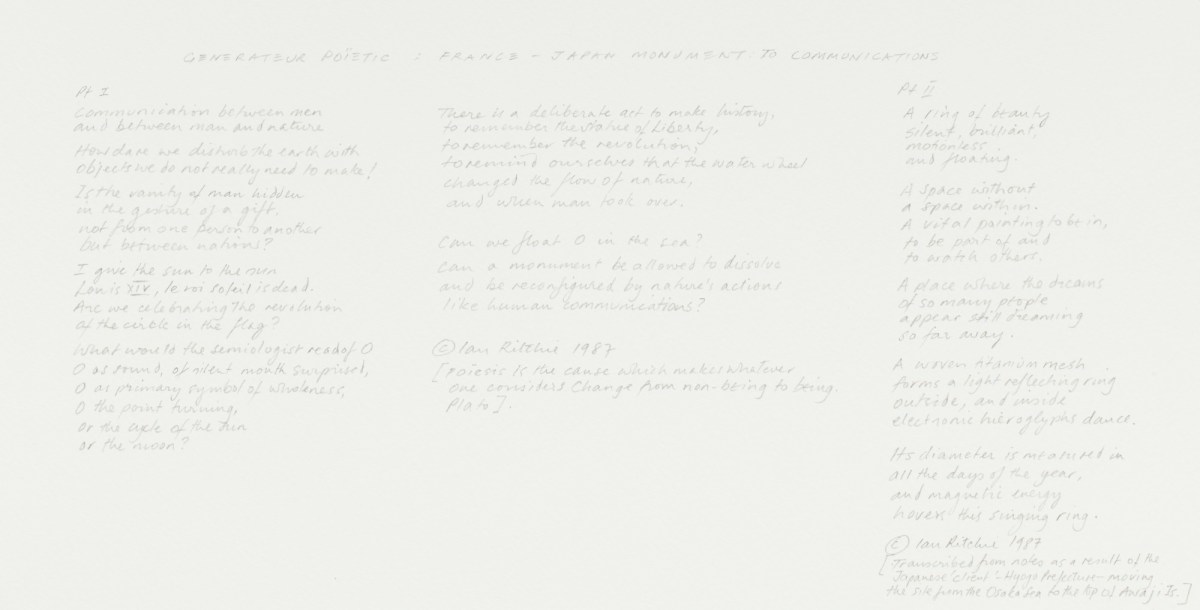 GENERATEUR POÏETIC : FRANCE – JAPAN MONUMENT TO COMMUNICATIONS
Pt I
Communication between men
and between man and nature
How dare we disturb the earth with
Objects we do not really need to make!
Is the vanity of man hidden
in the gesture of a gift.
not from one person to another
but between nations?
I give the sun to the sun
Louis XIV, le roi soleil is dead.
Are we celebrating the revolution
of the circle in the flag?
What would the semiologist read of O
O as sound, of silent mouth surprised,
O as primary symbol of wholeness,
O the point turning,
or the cycle of the sun
or the moon?
There is a deliberate act to make history,
to remember the statue of Liberty,
to remember the revolution,
to remind ourselves that the water wheel
changed the flow of nature,
and when man took over.
Can we float O in the sea?
Can a monument be allowed to dissolve
and be reconfigured by nature's actions
like human communications?
© Ian Ritchie 1987
[Poiesis is the cause which makes whatever
one considers change from non-being to being.
Plato].
Pt II
A ring of beauty
silent, brilliant,
motionless.
and floating.
A space without
a space within.
A vital painting to be in,
to be part of and
to watch others.
A place where the dreams
of so many people
appear still dreaming
so far away.
A woven titanium mesh
forms a light reflecting ring
outside, and inside
electronic hieroglyphs dance.
Its diameter is measured in
all the days of the year,
and magnetic energy
hovers this singing ring.
© Ian Ritchie 1987
[Transcribed from notes as a result of the
Japanese 'client' – Hyogo Prefecture – moving
the site from the Osaka Sea to the tip of Awaji Is.]